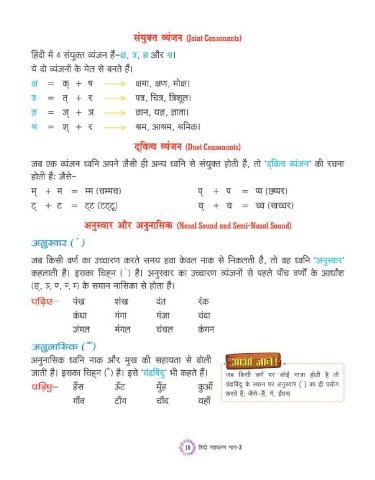 संयुक्त व्यंजन (Joint Consonants)
हिंदी में 4 संयुक्त व्यंजन हैं–क्ष, त्र, ज्ञ और श्र।
ये दो व्यंजनों के मेल से बनते हैं।
क्ष = क् + ष → क्षमा, क्षण, मोक्ष।
त्र = त् + र → पत्र, चित्र, त्रिशूल।
ज्ञ = ज् + ञ → ज्ञान, यज्ञ, ज्ञाता।
श्र = श् + र → श्रम, आश्रम, श्रमिक।
द्वित्व व्यंजन (Duet Consonants)
जब एक व्यंजन ध्वनि अपने जैसी ही अन्य ध्वनि से संयुक्त होती है, तो 'द्वित्व व्यंजन' की रचना
होती है; जैसे–
म् + म = म्म (चम्मच) प् + प = प्प (छप्पर)
ट् + ट = ट्ट (टट्टू) च् + च = च्च (खच्चर)
अनुस्वार और अनुनासिक (Nasal Sound and Semi-Nasal Sound)
अनुस्वार (ं)
जब किसी वर्ण का उच्चारण करते समय हवा केवल नाक से निकलती है, तो वह ध्वनि 'अनुस्वार'
कहलाती है। इसका चिह्न (ं) है। अनुस्वार का उच्चारण व्यंजनों से पहले पाँच वर्णों के आधांश
(ङ्, ञ्, ण्, न्, म्) के समान नासिका से होता है।
पढ़िए– पंख शंख दंत रंक
कंघा गंगा गंजा चंदा
जंगल मंगल चंचल कंगन
अनुनासिक (ँ)
अनुनासिक ध्वनि नाक और मुख की सहायता से बोली
जाती है। इसका चिह्न (ँ) है। इसे 'चंद्रबिंदु' भी कहते हैं।
पढ़िए– हँस ऊँट मुँह कुआँ
गाँव टाँग चाँद यहाँ
आओ जानें!
जब किसी वर्ण पर कोई मात्रा होती है तो
चंद्रबिंदु के स्थान पर अनुस्वार (ं) का ही प्रयोग
करते हैं; जैसे–हैं, में, ईंधन
10 हिंदी व्याकरण भाग-3